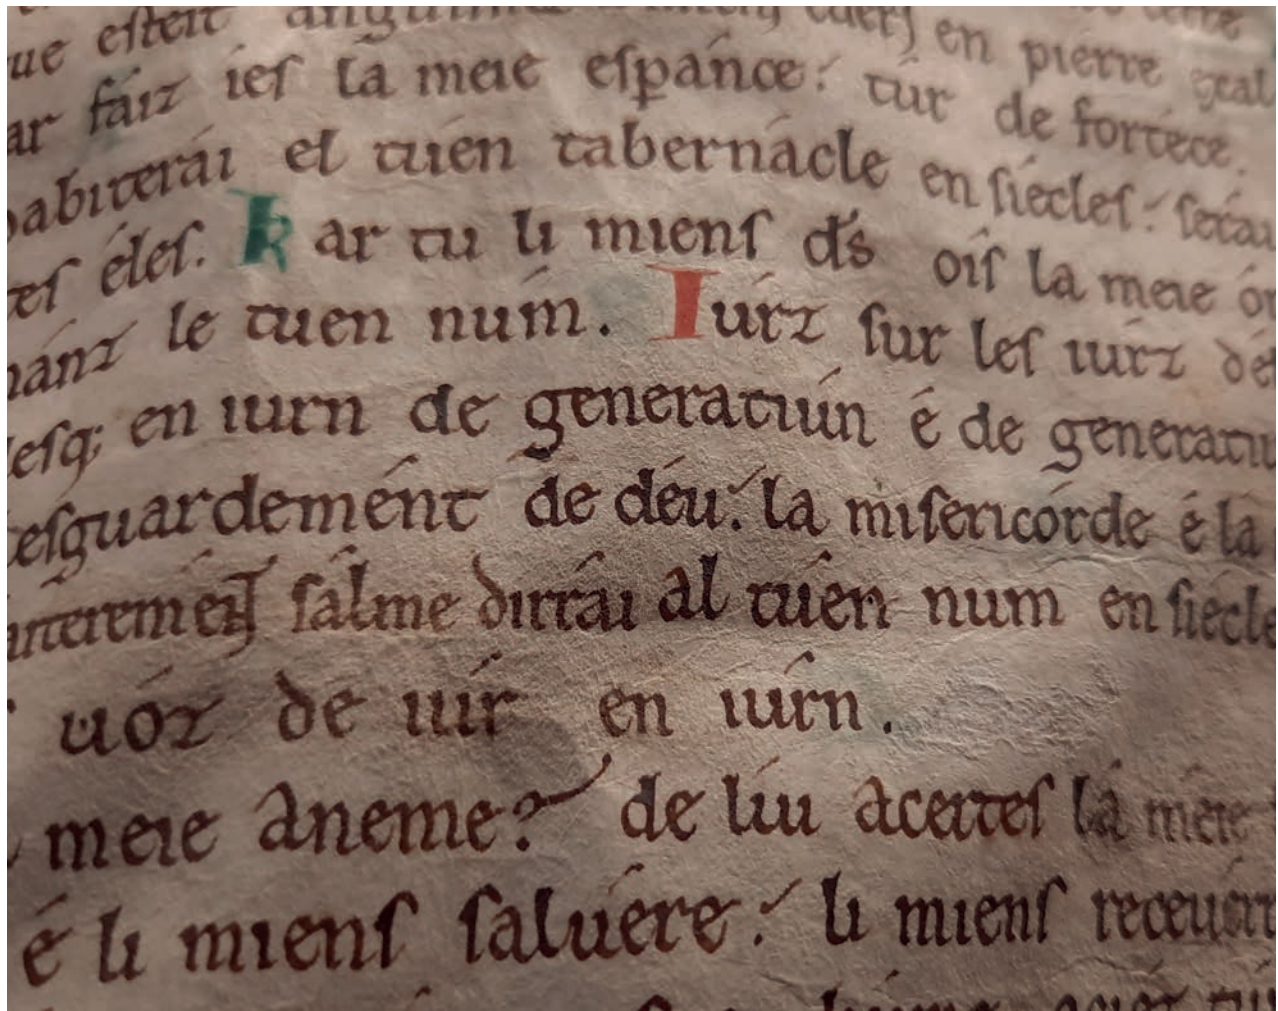 ue esteit en pierre
ar faiz ies la meie esp̄ance: túr de fortéce.
abiterái el tuén tabernácle en siécles: serai
éles. Kar tu li miens d̄s oís la meie
le tuen núm. Iúrz sur les iúrz
en iurn de generatiún é de generatiu
esguardemént de déu: la misericórde é la
sálme dirrái al tuén num en siecle
uóz de uír en iúrn.
meie aneme? de líu acertes lá méie
é li miens saluére: li miens receuére